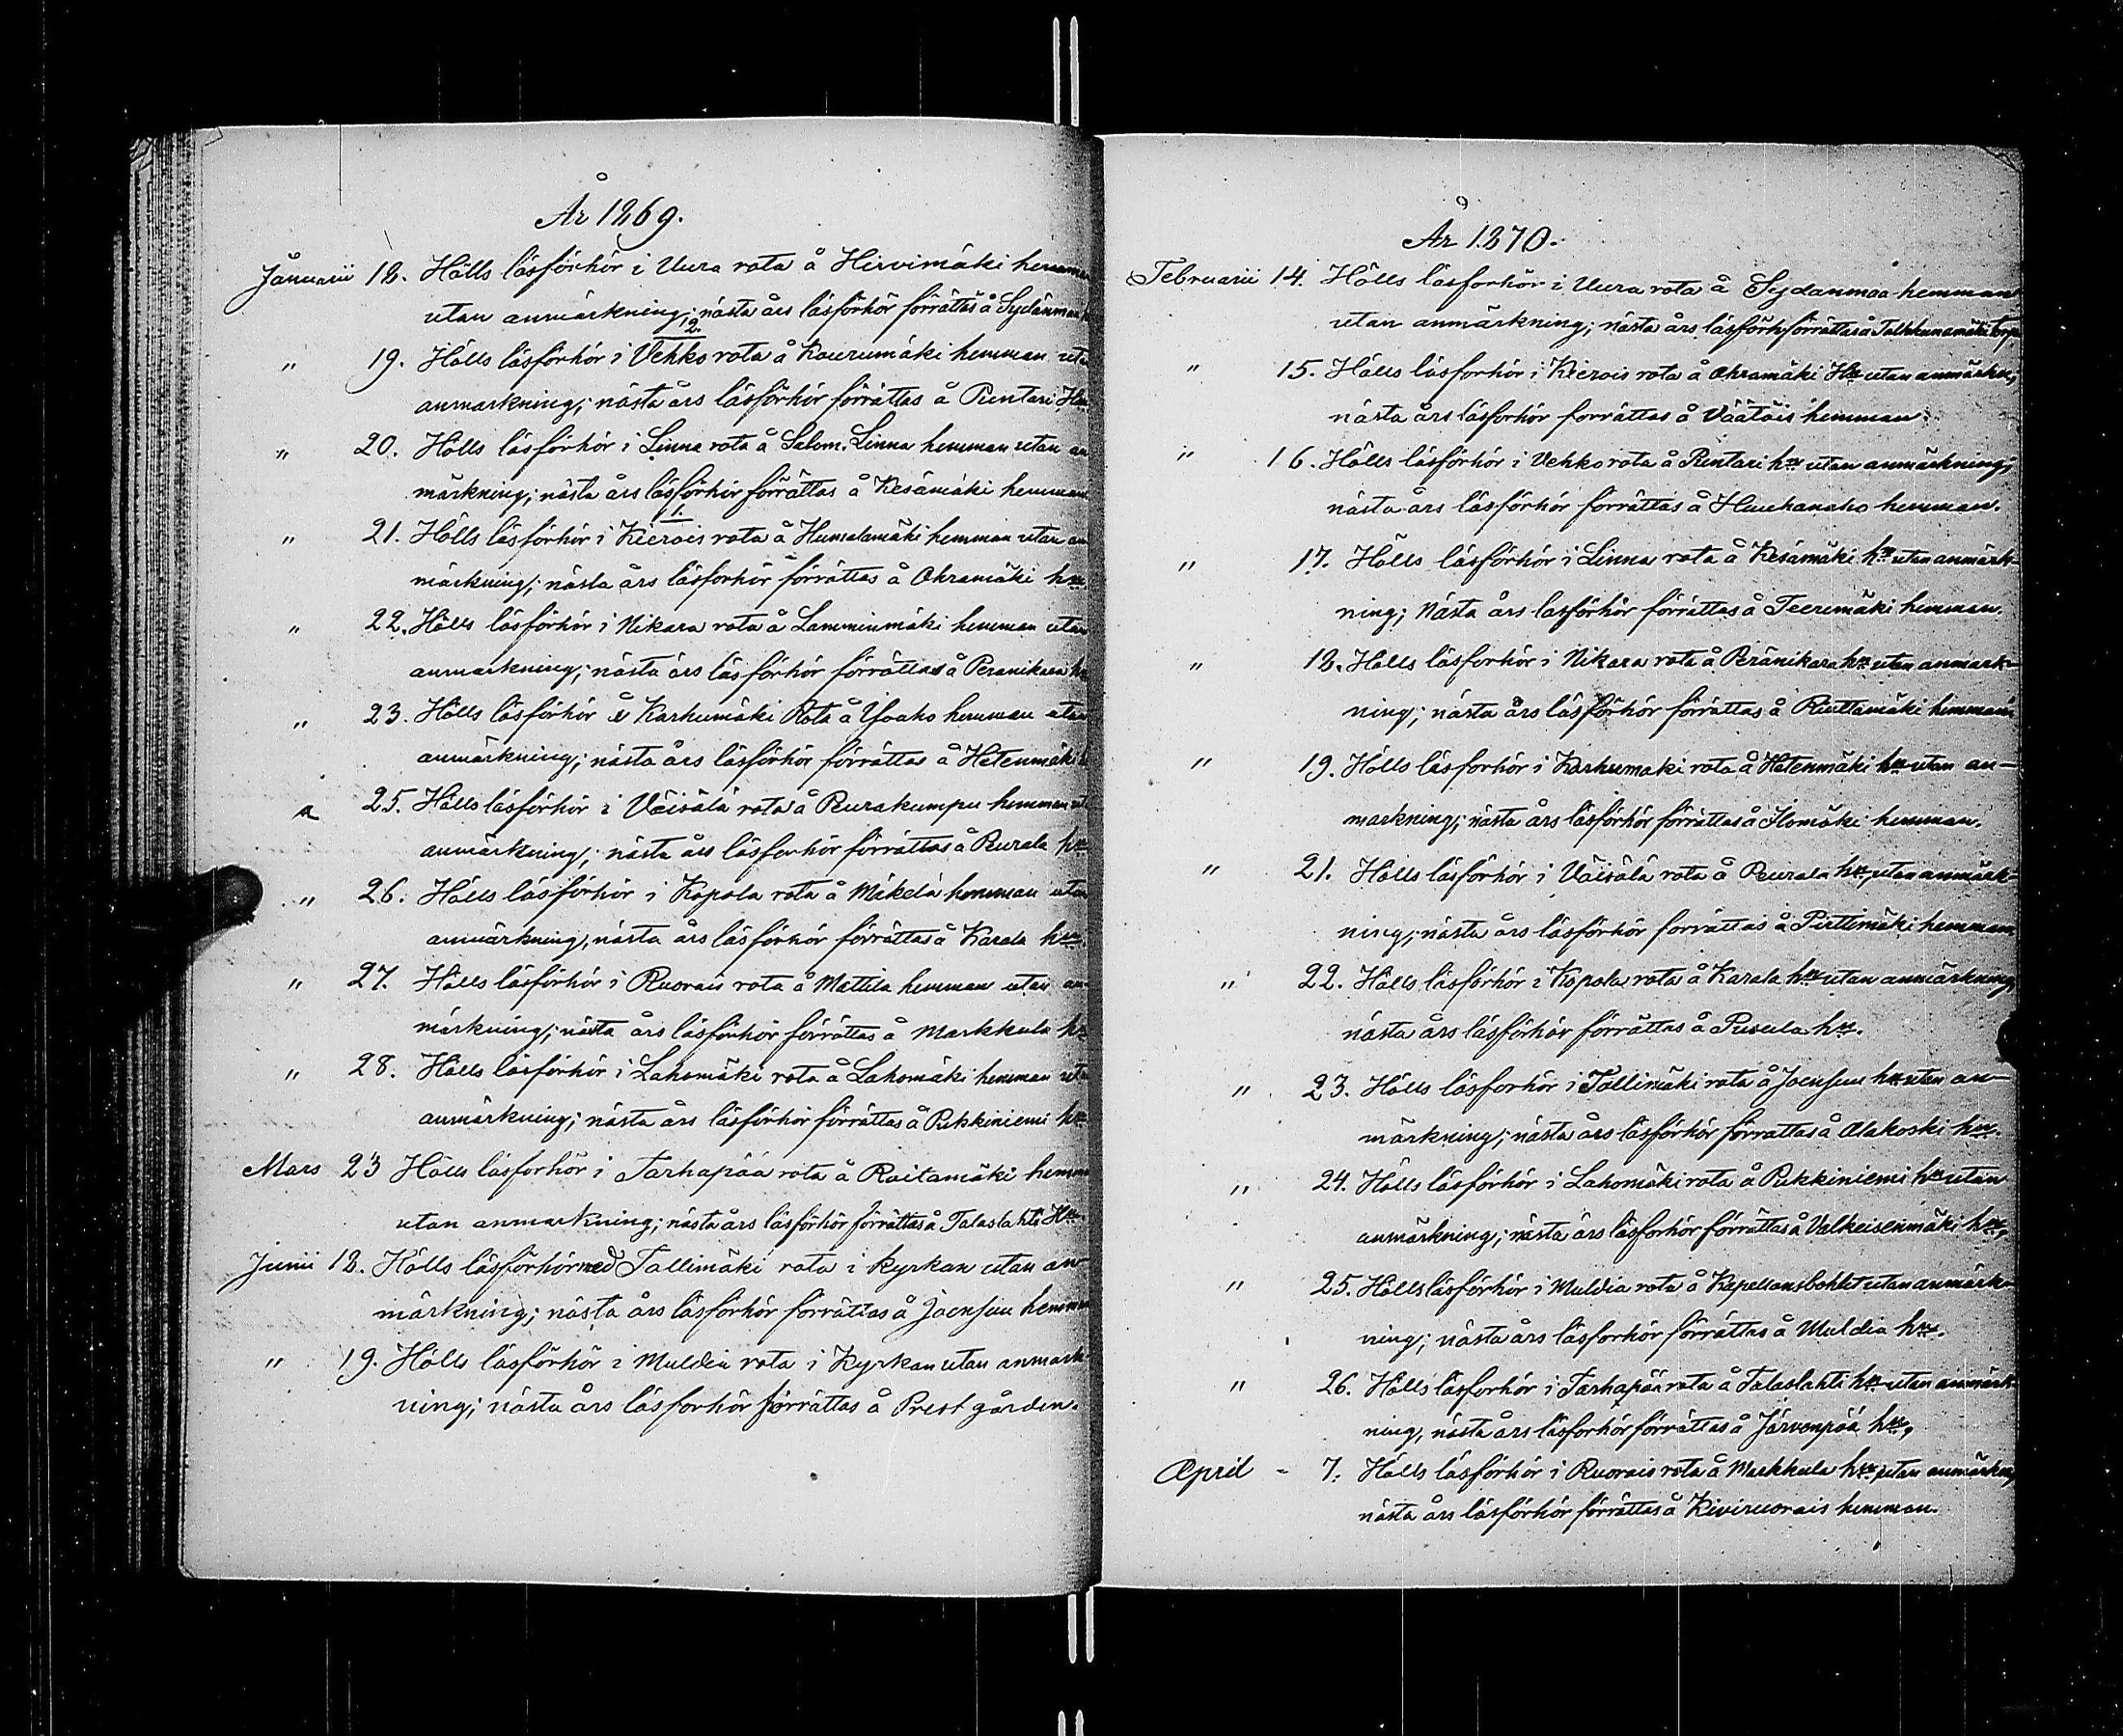 År 1869.
Januarii 18. Hölls läsförhör i Uura rota å Hirvimäki hemman
utan anmärkning; nästa års läsförhör förrättas å Sydänmaa
2.
" 19. Hölls läsförhör i Vehko rota å Kourumäki hemman utan
anmärkning; nästa års läsförhör förrättas å Pentari Hn
" 20. Hölls läsförhör i Linna rota å Salom. Linna hemman utan an
märkning; nästa års läsförhör förrättas å Kesämäki hemman
1.
" 21. Hölls läsförhör i Kierois rota å Humalamäki hemman utan an
märkning; nästa års läsförhör förrättas å Ohramäki hn
" 22. Hölls läsförhör i Nikara rota å Lamminmäki hemman utan
anmärkning; nästa års läsförhör förrättas å Peranikara hn
" 23. Hölls läsförhör å Karhumäki Rota å Yoaho hemman utan
anmärkning; nästa års läsförhör förrättas å Hetenmäki
" 25. Hölls läsförhör i Väisälä rota å Peurakumpu hemman
anmärkning; nästa års läsförhör förrättas å Peurala hn
" 26. Hölls läsförhör i Kopola rota å Mäkelä hemman utan
anmärkning, nästa års läsförhör förrättas å Karala hn.
" 27. Hölls läsförhör i Ruorais rota å Mattila hemman utan an-
märkning; nästa års läsförhör förrättas å Markkula hn
" 28. Hölls läsförhör i Lahomäki rota å Lahomäki hemman utan
anmärkning; nästa års läsförhör förrättas å Pukkiniemi hn
Mars 23 Hölls läsförhör i Tarhapää rota å Raitamäki hemm
utan anmärkning; nästa års läsförhör förrättas å Talaslahti Hn.
Junii 18. Hölls läsförhör med Tallimäki rota i kyrkan utan an
märkning; nästa års läsförhör förrättas å Joensuu hemman
" 19. Hölls läsförhör i Muldia rota i Kyrkan utan anmärk-
ning; nästa års läsförhör förrättas å Prestgården.
År 1870.
Februarii 14. Hölls läsförhör i Uura rota å Sydanmaa hemman
utan anmärkning; nästa års läsförh. förrättas å Talkkunamäki torp
" 15. Hölls läsförhör i Kierois rota å Ohramäki Hn utan anmärkn;
nästa års läsförhör förrättas å Väätäis hemman.
" 16. Hölls läsförhör i Vehko rota å Pentari hn utan anmärkning;
nästa års läsförhör förrättas å Huuhanaho hemman.
" 17. Hölls läsförhör i Linna rota å Kesämäki hn utan anmärk-
ning; Nästa års läsförhör förrättas å Teerimäki hemman.
" 18. Hölls läsförhör i Nikara rota å Peränikara hn utan anmärk-
ning; nästa års läsförhör förrättas å Pinttamäki hemman
" 19. Hölls läsförhör i Karhumäki rota å Hetenmäki hn utan an-
märkning; nästa års läsförhör förrättas å Ilomäki hemman.
" 21. Hölls läsförhör i Väisälä rota å Peurala hn, utan anmärk-
ning; nästa års läsförhör förrättas å Pirttimäki hemman
" 22. Hölls läsförhör i Kopola rota å Karala hn utan anmärkning,
nästa års läsförhör förrättas å Pusula hn.
" 23. Hölls läsförhör i Tallimäki rota å Joensuu hn utan an-
märkning; nästa års läsförhör förrättas å Alakoski hn.
" 24. Hölls läsförhör i Lahomäki rota å Pukkiniemi hn utan
anmärkning; nästa års läsförhör förrättas å Valkeisenmäki hn,
" 25. Hölls läsförhör i Muldia rota å Kapellansbohlet utan anmärk-
ning; nästa års läsförhör förrättas å Muldia hn.
" 26. Hölls läsförhör i Tarhapää rota å Talaslahti hn utan anmärk-
ning, nästa års läsförhör förrättas å Järvenpää hn,
April - 7. Hölls läsförhör i Ruorais rota å Markkula hn, utan anmärkn,
nästa års läsförhör förrättas å Kiviruorais hemman.